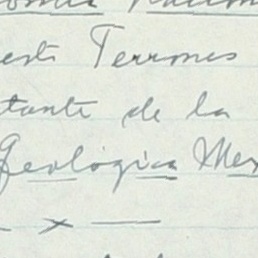 este Terrones
tante de la
Geológica Mex
— x —